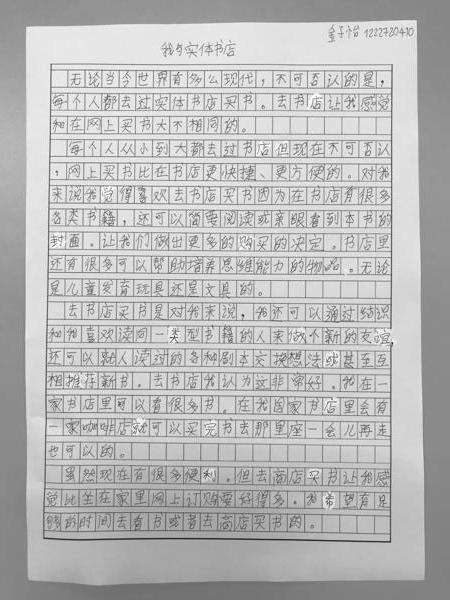 金子怡 1222720410
我与实体书店
无论当今世界有多么现代，不可否认的是，
每个人都去过实体书店买书。去书店让我感觉
和在网上买书大不相同的。
每个人从小到大都去过书店但现在不可否认
，网上买书比在书店更快捷、更方便的。对我
来说我觉得喜欢去书店买书因为在书店有很多
各类书籍，还可以简要阅读或亲眼看到本书的
封面。让我们做出更多的购买的决定。书店里
还有很多可以帮助培养思维能力的物品。无论
是儿童发育玩具还是文具的。
去书店买书是对我来说，我还可以通过结识
和我喜欢读同一类型书籍的人来做个新的友谊，
还可以跟人读过的各种剧本交换想法或甚至互
相推荐新书。去书店我认为这非常好。我在一
家书店里可以看很多书。在我国家书店里会有
一家咖啡店就可以买完书去那里座一会儿再走
也可以的。
虽然现在有很多便利。但去商店买书让我感
觉比坐在家里网上订购要好得多。我希望有足
够的时间去看书或者去商店买书的。